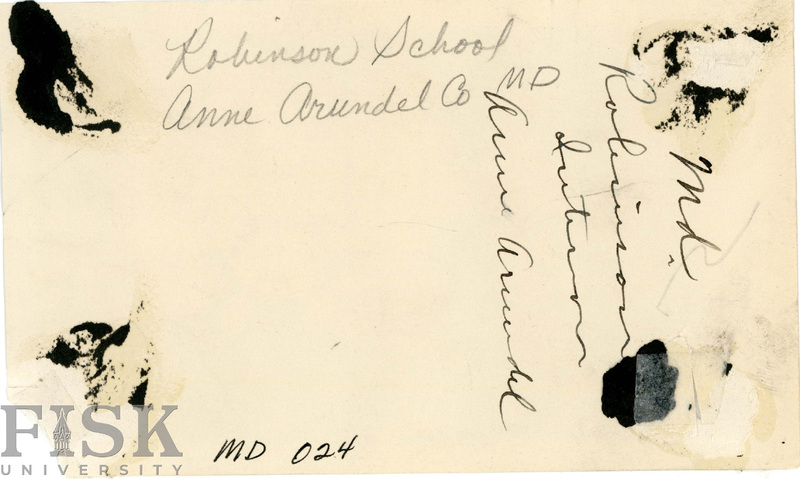 Robinson School
Anne Arundel Co MD
Md.
Robinson
Interior
Anne Arundel
MD 024
FISK
UNIVERSITY